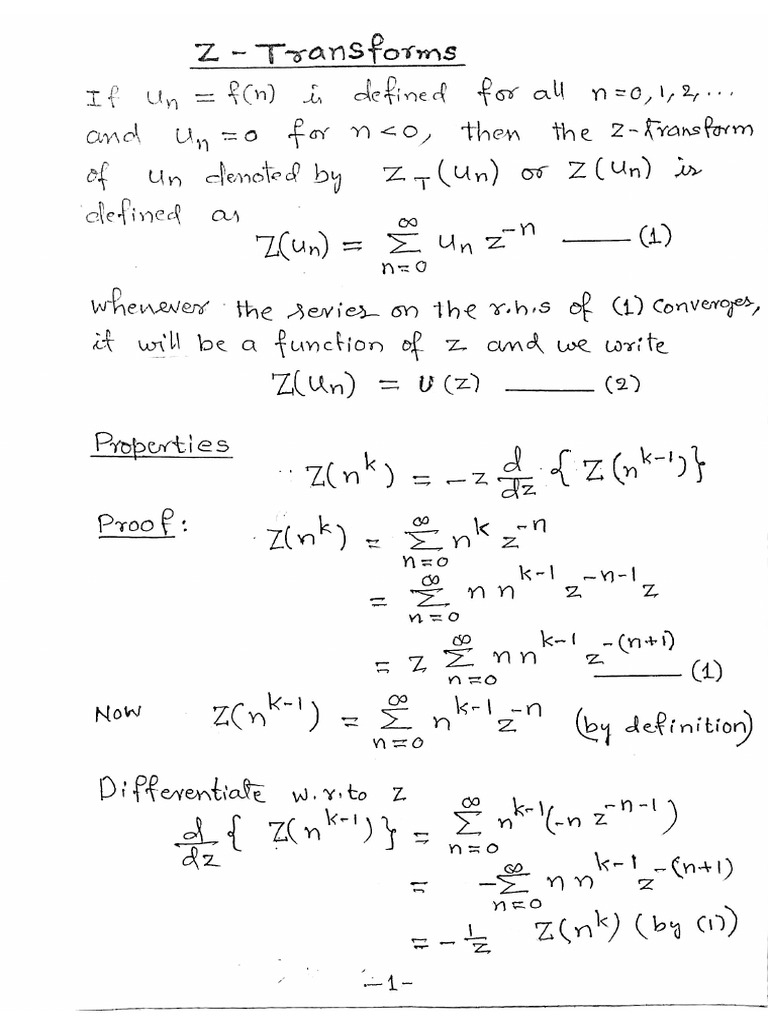 Z - Transforms
If uₙ = f(n) is defined for all n=0,1,2,...
and uₙ=0 for n<0, then the Z-transform
of uₙ denoted by Z_T(uₙ) or Z(uₙ) is
defined as
Z(uₙ) = ∑_{n=0}^{∞} uₙ z^{-n} —— (1)
whenever the series on the r.h.s of (1) converges,
it will be a function of z and we write
Z(uₙ) = U(z) —— (2)
Properties
Z(n^k) = -z d/dz {Z(n^{k-1})}
Proof: Z(n^k) = ∑_{n=0}^{∞} n^k z^{-n}
= ∑_{n=0}^{∞} n n^{k-1} z^{-n-1} z
= z ∑_{n=0}^{∞} n n^{k-1} z^{-(n+1)} —— (1)
Now Z(n^{k-1}) = ∑_{n=0}^{∞} n^{k-1} z^{-n} (by definition)
Differentiate w.r.to z
d/dz { Z(n^{k-1})} = ∑_{n=0}^{∞} n^{k-1}(-n z^{-n-1})
= -∑_{n=0}^{∞} n n^{k-1} z^{-(n+1)}
= -1/z Z(n^k) (by (1))
-1-